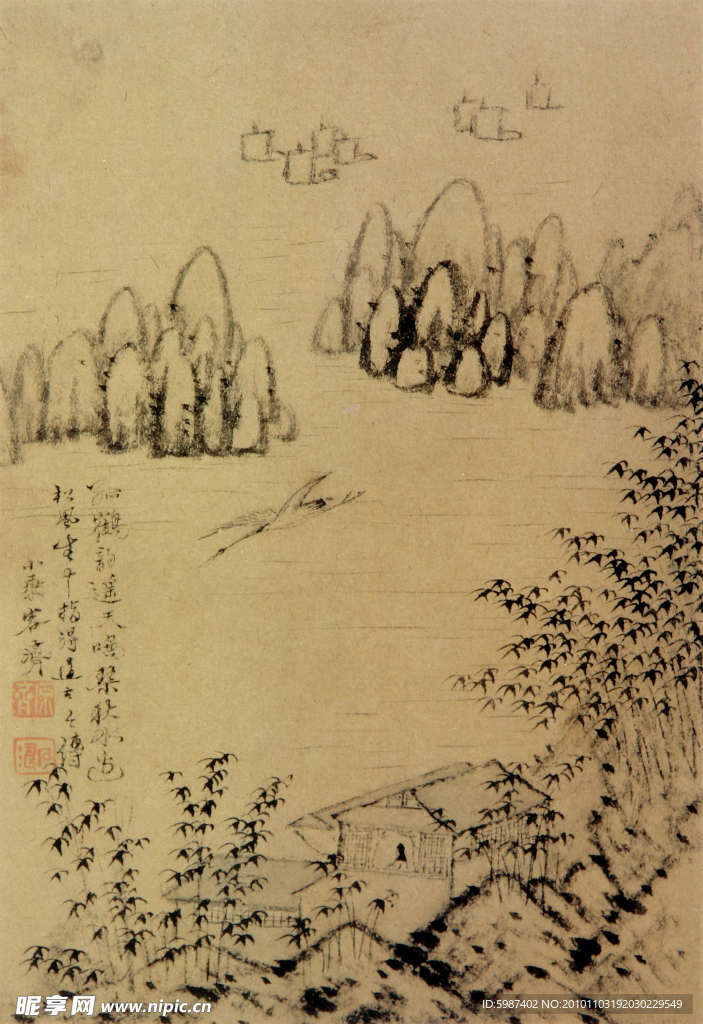 孤鶴韻遙天鳴琴秋水邊
松風生十指得古之傳
小乘客濟
昵享网 www.nipic.cn
ID:5987402 NO:20101103192030229549